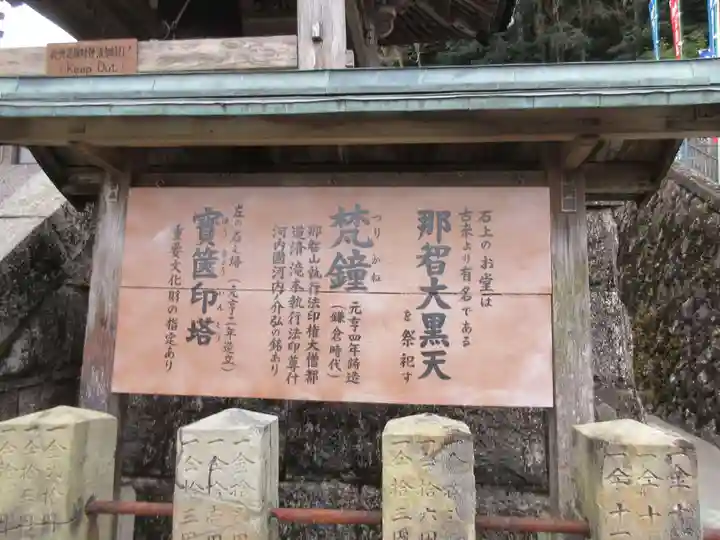 Keep Out!
石上のお堂は
古来より有名である
那智大黒天
を祭祀す
つりかね
梵鐘
元亨四年鋳造
(鎌倉時代)
那智山執行法印権大僧都
道済滝本執行法印尊什
河内國河内ノ介弘の銘あり
左の石之塔(元亨二年造立)
ほうきょういんとう
寳篋印塔
重要文化財の指定あり
一金拾三円
一金拾六円